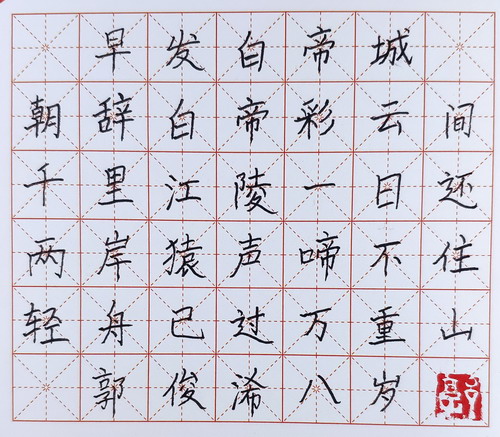 早发白帝城
朝辞白帝彩云间
千里江陵一日还
两岸猿声啼不住
轻舟已过万重山
郭俊浠八岁